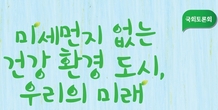 국회토론회
미세먼지 없는
건강 환경 도시,
우리의 미래